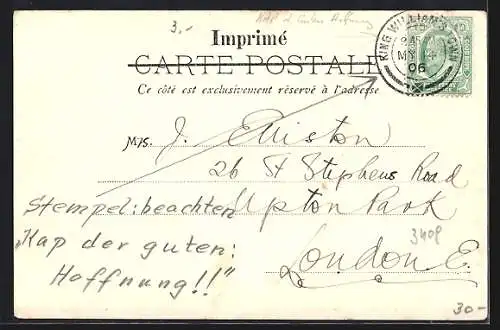 3.-
Kap d. Guten Hoffnung
Imprimé
CARTE POSTALE
Ce côté est exclusivement réservé à l'adresse
KING WILLIAM'S TOWN
MY 4
06
M75.
J. Elliston
26 St Stephens Road
Upton Park
London E.
Stempel: beachten
„Kap der guten:
Hoffnung!!"
3408
30-